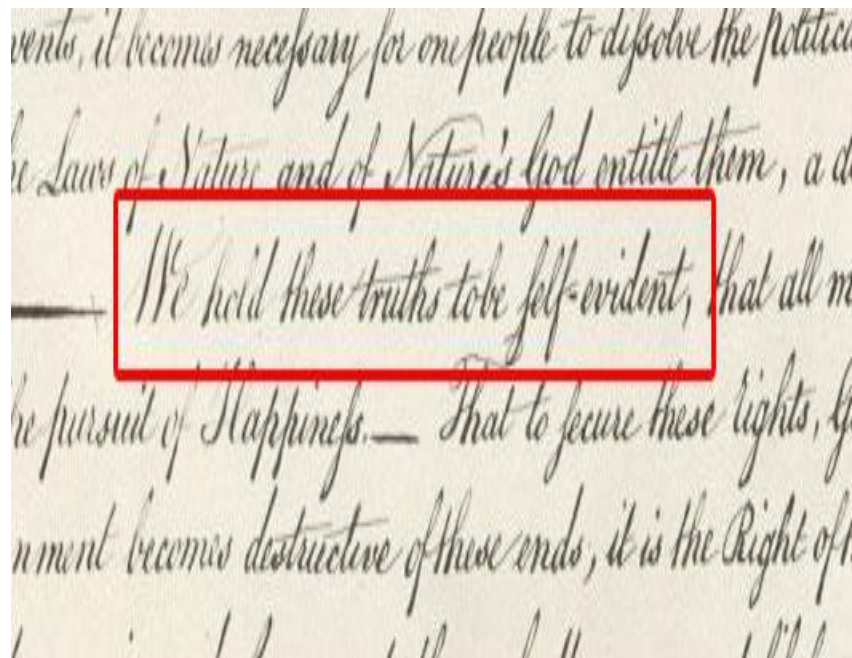 vents, it becomes neceſsary for one people to diſsolve the politica
he Laws of Nature and of Nature's God entitle them, a de
We hold these truths to be ſelf-evident, that all m
he pursuit of Happineſs.— That to ſecure these rights, G
nment becomes destructive of these ends, it is the Right of t